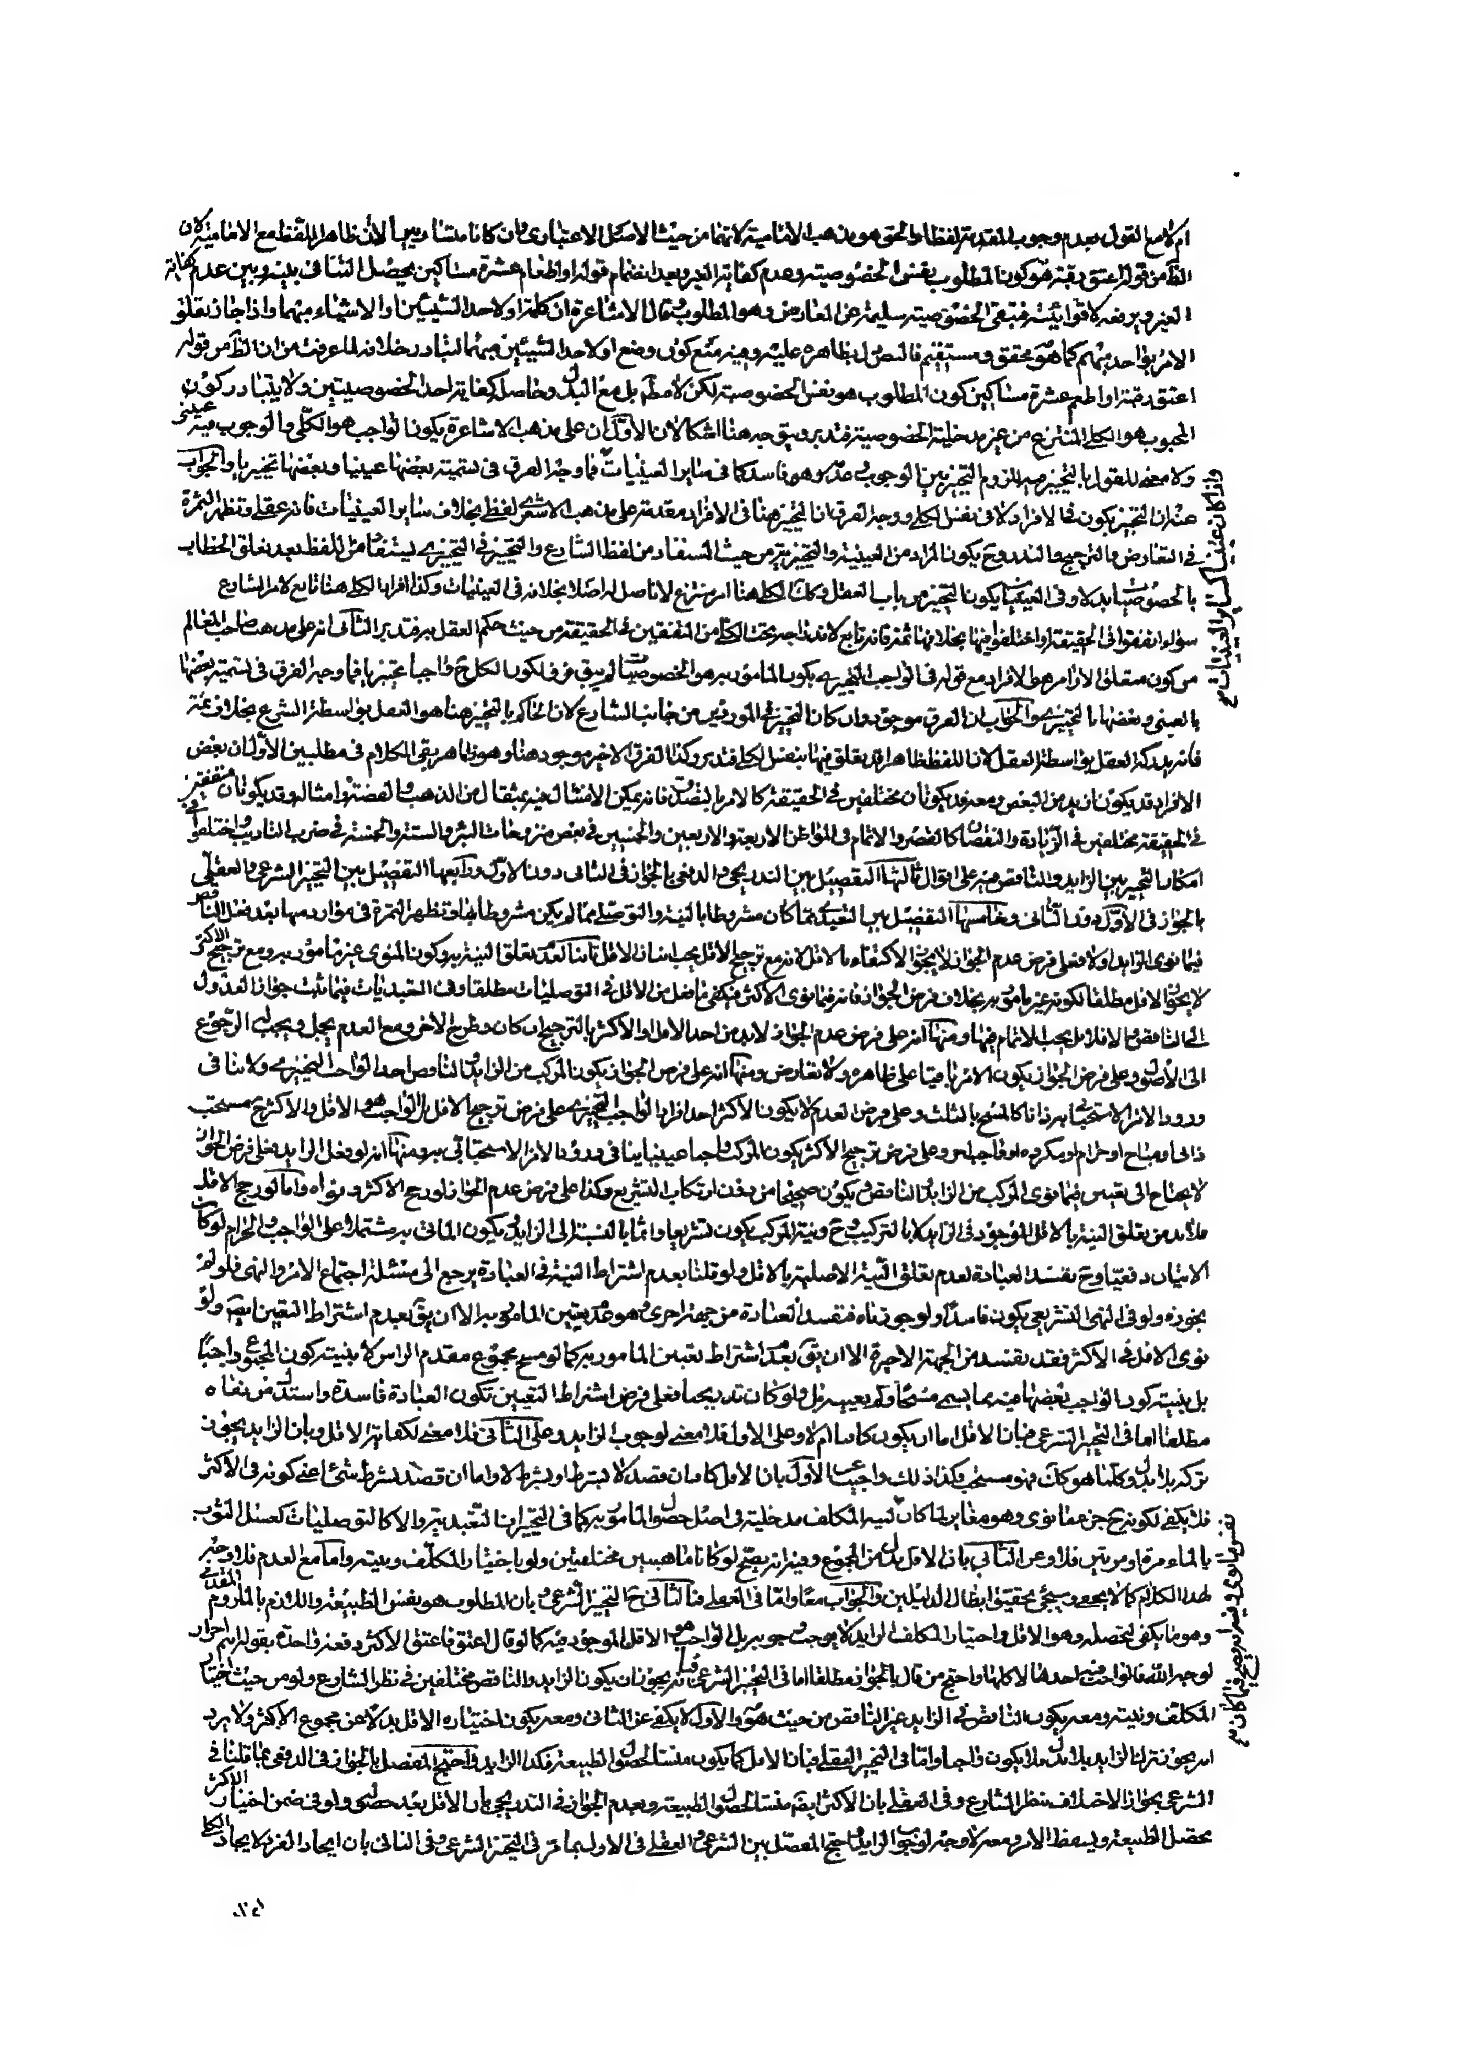 ام لا مع القول بعدم وجوب المقدمة لفظا والحق هو مذهب الامامية لانهما من حيث الاصل الاعتباري وان كانا متشاربين الا ان ظاهر اللفظ مع الامامية لان
الظ من قوله اعتق رقبة هو كون المطلوب نفس الخصوصية وعدم كفاية الغير وبعد انضمام قوله او اطعام عشرة مساكين يحصل التنافي بينه وبين عدم كفاية
الغير ويرفعه لاقوائيته فتبقى الخصوصية سليمة عن المعارض وهو المطلوب وقال الاشاعرة ان كلمة او لاحد الشيئين او الاشياء مبهما واذا جاز تعلق
الامر بواحد مبهم كما هو محقق ومستقيم فالنص بظاهره عليه وفيه منع كون وضع او لاحد الشيئين مبهما لتبادر خلافه لما عرفت من ان الظ من قوله
اعتق رقبة او اطعم عشرة مساكين كون المطلوب هو نفس الخصوصية لكن لا مطم بل مع البدل وحاصله كفاية احد الخصوصيتين ولا يتبادر كون
المحبوب هو الكلي المنتزع من غير مدخلية الخصوصية فتدبر ويتوجه هنا اشكالان الاول ان على مذهب الاشاعرة يكون الواجب هو الكلي والوجوب فيه عيني
ولا معنى للقول بالتخيير فيه للزوم التخيير بين الوجوب وعدمه وهو فاسد كما في ساير العينيات فما وجه الفرق في تسمية بعضها عينيا وبعضها تخييريا والجواب
عنه ان التخيير يكون في الافراد لا في نفس الكلي ووجه الفرق ان التخيير هنا في الافراد مقدمة على مذهب الاشعري لفظي بخلاف ساير العينيات فانه عقلي وتظهر الثمرة
في التعارض والترجيح والنذر وح يكون المراد من العينية والتخييرية من حيث المستفاد من لفظ الشارع والتخيير في التخييري يستفاد من اللفظ بعد تعلق الخطاب
بالخصوصيات بدلا وفي العينيات يكون التخيير من باب العقل وكك الكلي هنا امر منتزع لا تاصل له اصلا بخلافه في العينيات وكذا افراد الكلي هنا تابع لامر الشارع
سواء اتفقوا في الحقيقة او اختلفوا فيها بخلافها ثمة فانه تابع لاندراجه تحت الكلي من المتفقين في الحقيقة من حيث حكم العقل به فتدبر الثاني انه على مذهب صاحب المعالم
من كون متعلق الاوامر هو الافراد مع قوله في الواجب التخييري بكون المامور به هو الخصوصيات لم يبق فرق لكون الكل ح واجبا تخييريا فما وجه الفرق في تسمية بعضها
بالعيني وبعضها بالتخييري والجواب ان الفرق موجود وان كان التخيير في الموردين من جانب الشارع لان الحاكم بالتخيير هنا هو العقل بواسطة الشرع بخلاف ثمة
فانه يدركه العقل بواسطة العقل لان اللفظ ظاهرا قد يعلق فيها بنفس الكلي فتدبر وكذا الفرق الاخير موجود هنا وهو ظاهر بقى الكلام في مطلبين الاول ان بعض
الافراد قد يكون ازيد من البعض ومعه قد يكونان مختلفين في الحقيقة كالامر بالتصدق فانه يمكن الامتثال فيه بمثقال من الذهب والفضة وامثاله وقد يكونان متفقين
في الحقيقة مختلفين في الزيادة والنقصان كالقصر والاتمام في المواطن الاربعة والاربعين والخمسين في بعض منزوحات البئر والستة والخمسة في ضرب التاديب واختلفوا في
امكان التخيير بين الزايد والناقص فيه على اقوال ثالثها التفصيل بين التدريجي والدفعي بالجواز في الثاني دون الاول ورابعها التفصيل بين التخيير الشرعي والعقلي
بالجواز في الاول دون الثاني وخامسها التفصيل بين التعبدي مما كان مشروطا بالنية والتوصلي مما لم يكن مشروطا بها وتظهر الثمرة في موارد منها بعد فعل الناقص
فيما نوى الزايد اولا فعلى فرض عدم الجواز لا يجوز الاكتفاء بالاقل لانه مع ترجيح الاقل يجب اتيان الاقل ثانيا لعدم تعلق النية به وكون المنوي غير مامور به ومع ترجيح الاكثر
لا يجوز الاقل مطلقا لكونه غير مامور به بخلاف فرض الجواز فانه فيما نوى الاكثر فيكفي ما فعل من الاقل في التوصليات مطلقا وفي التعبديات فيما ثبت جواز العدول
الى الناقص والا فلا بل يجب الاتمام فيها ومنها انه على فرض عدم الجواز لا بد من احد الاقل او الاكثر بالترجيح ان كان وطرح الاخر ومع العدم يجمل ويجب الرجوع
الى الاصول وعلى فرض الجواز يكون الامر باقيا على ظاهره ولا تعارض ومنها انه على فرض الجواز يكون المركب من الزايد والناقص احد الواجب التخييري ولا ينافي
ورود الامر الاستحبابي به ذاتا كالمسح بالثلث وعلى فرض العدم لا يكون الاكثر احد افراد الواجب التخييري على فرض ترجيح الاقل بل الواجب هو الاقل والاكثر ح مستحب
ذاتا او مباح او حرام او مكروه او واجب اخر وعلى فرض ترجيح الاكثر يكون المركب واجبا عينيا ينافي ورود الامر الاستحبابي به ومنها انه لو فعل الزايد فعلى فرض الجواز
لا يحتاج الى تعيين فيما نوى المركب من الزايد والناقص ويكون صحيحا من دون ارتكاب التشريع وكذا على فرض عدم الجواز لو رجح الاكثر ونواه واما لو رجح الاقل
فلا بد من تعلق النية بالاقل الموجود في الزايد لا بالتركيب وح ونية المركب يكون تشريعا واثما بالنسبة الى الزايد ويكون الماتي به مشتملا على الواجب والحرام لو كان
الاتيان دفعيا وح تفسد العبادة لعدم تعلق النية الاصلية بالاقل ولو قلنا بعدم اشتراط النية في العبادة يرجع الى مسئلة اجتماع الامر والنهي فلو لم
نجوزه ولو في النهي التشريعي يكون فاسدا ولو جوزناه فتفسد العبادة من جهة اخرى وهو عدم تعيين المامور به الا ان يق بعدم اشتراط التعيين ايضا ولو
نوى الاقل في الاكثر فقد تفسد من الجهة الاخيرة الا ان يق بعدم اشتراط تعيين المامور به كما لو مسح مجموع مقدم الراس لا بنية كون المجموع واجبا
بل بنية كون الواجب بعضها منه بما يسمى مسحا ولم يعينه بل ولو كان تدريجيا فعلى فرض اشتراط التعيين تكون العبادة فاسدة واستدل من نفاه
مطلقا اما في التخيير الشرعي فبان الاقل اما ان يكون كافيا ام لا وعلى الاول فلا معنى لوجوب الزايد وعلى الثاني فلا معنى لكفاية الاقل وبان الزايد يجوز
تركه بلا بدل وكلما هو كك فهو مستحب فكذا ذلك واجيب عن الاول بان الاقل كاف ان قصد لا بشرط او بشرط لا واما ان قصد بشرط شئ اعني كونه في الاكثر
فلا يكفي لكونه ح جزء ما نوى وهو مغاير لما كان لنية المكلف مدخلية في اصل حصول المامور به كما في التخييرات التعبدية والا كالتوصليات كغسل الثوب
بالماء مرة او مرتين فلا وعن الثاني بان الاقل بدل من المجموع وفيه انه يصح لو كانا ماهيتين مختلفتين ولو باختيار المكلف ونيته واما مع العدم فلا وجه
لهذا الكلام كما لا يخفى وسيجئ تحقيق ابطال الدليلين والجواب معا واما في العقلي فكالثاني ح التخيير الشرعي وبان المطلوب هو نفس الطبيعة واللازم بالملزوم المقدمي
وهو ما يكفي لتحصله وهو الاقل واختيار المكلف الزايد لا يوجب وجوبه بل الواجب هو الاقل الموجود فيه كما لو قال اعتق فاعتق الاكثر دفعة واحدة بقوله انتم احرار
لوجه الله فالواجب منه احدها لا كلها واحتج من قال بالجواز مطلقا اما في التخيير الشرعي فبانه يجوز ان يكون الزايد والناقص مختلفين في نظر الشارع ولو من حيث اختيار
المكلف ونيته ومعه يكون الناقص في الزايد غير الناقص من حيث هو والاول لا يكفي عن الثاني ومعه يكون اختياره الاقل بدلا عن مجموع الاكثر ولا يرد
انه يجوز ترك الزايد بلا بدل فلا يكون واجبا واما في التخيير العقلي فبان الاقل كما يكون منشا لحصول الطبيعة فكذا الزايد واحتج المفصل بالجواز في الدفعي بما قلنا في
الشرعي بجواز الاختلاف بنظر الشارع وفي العقلي بان الاكثر ايضا منشا لحصول الطبيعة وبعدم الجواز في التدريجي بان الاقل بعد حصوله ولو في ضمن اختيار الاكثر
يحصل الطبيعة ويسقط الامر ومعه لا وجه لوجوب الزايد واحتج المفصل بين الشرعي والعقلي في الاول بما مر في التخيير الشرعي وفي الثاني بان ايجاد الفرد لايجاد الكلي
واذا كان عينيا كساير العينيات مع